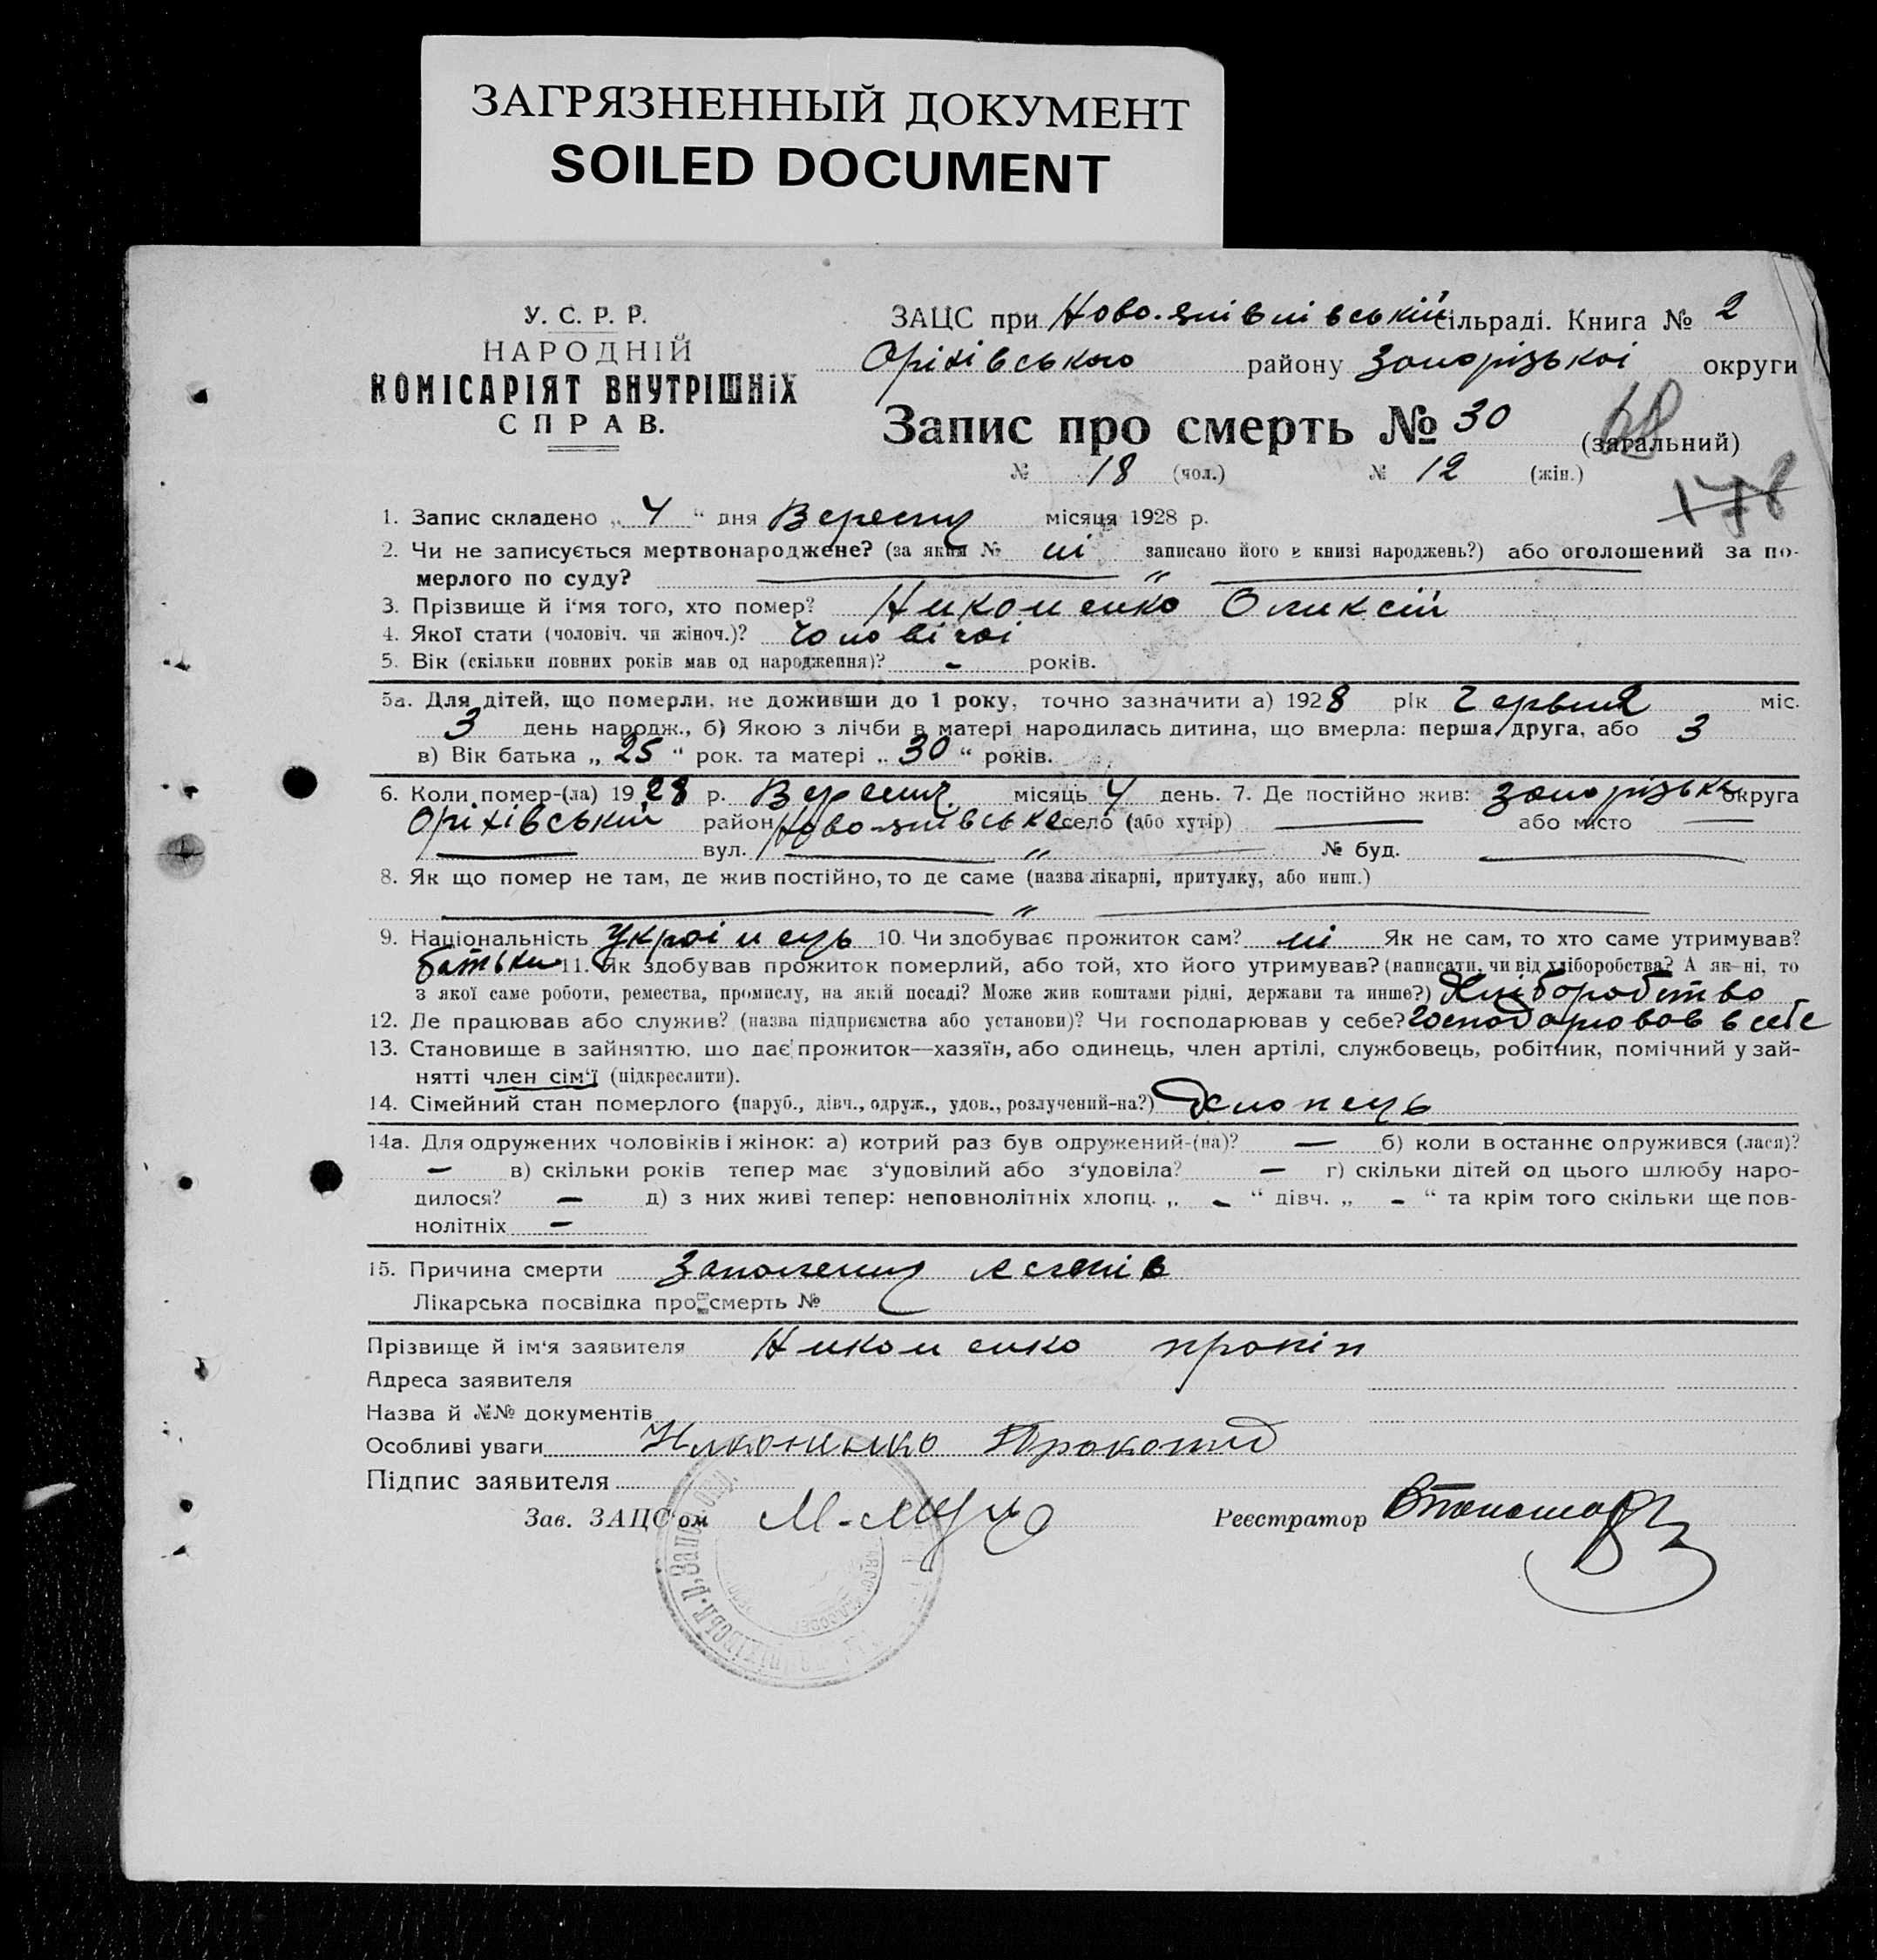 ЗАГРЯЗНЕННЫЙ ДОКУМЕНТ
SOILED DOCUMENT
У. С. Р. Р.
НАРОДНІЙ
КОМІСАРІЯТ ВНУТРІШНІХ
СПРАВ.
ЗАЦС при сільраді. Книга № 2
Оріхівського району Запорізькоі округи
Запис про смерть № 30 (загальний)
68
№ 18 (чол.) № 12 (жін.)
178
1. Запис складено „ 4 “ дня Вересня місяця 1928 р.
2. Чи не записується мертвонароджене? (за яким № ні записано його в книзі народжень?) або оголошений за по-
мерлого по суду? — „ —
3. Прізвище й і'мя того, хто помер? Никоненко Оликсій
4. Якої стати (чоловіч. чи жіноч.)? Чоловічоі
5. Вік (скільки повних років мав од народження)? - років.
5а. Для дітей, що померли, не доживши до 1 року, точно зазначити а) 1928 рік Червня міс.
3 день народж., б) Якою з лічби в матері народилась дитина, що вмерла: перша, друга, або 3
в) Вік батька „ 25 “ рок. та матері „ 30 “ років.
6. Коли помер-(ла) 1928 р. Вересня місяць 4 день. 7. Де постійно жив: Запорізька округа
Оріхівській район село (або хутір) — або місто —
— вул. — „ — № буд. —
8. Як що помер не там, де жив постійно, то де саме (назва лікарні, притулку, або инш.)
— „ —
9. Національність Украінець 10. Чи здобуває прожиток сам? ні Як не сам, то хто саме утримував?
батьки 11. Як здобував прожиток померлий, або той, хто його утримував? (написати, чи від хліборобства? А як-ні, то
з якої саме роботи, ремества, промислу, на якій посаді? Може жив коштами рідні, держави та инше?) Хліборобство
12. Де працював або служив? (назва підприємства або установи)? Чи господарював у себе? Господарював в себе
13. Становище в зайняттю, що дає прожиток—хазяїн, або одинець, член артілі, службовець, робітник, помічний у зай-
нятті член сім'ї (підкреслити).
14. Сімейний стан померлого (паруб., дівч., одруж., удов., розлучений-на?) Хлопець
14а. Для одружених чоловіків і жінок: а) котрий раз був одружений-(на)? — б) коли в останнє одружився (лася)?
— в) скільки років тепер має з'удовілий або з'удовіла? — г) скільки дітей од цього шлюбу наро-
дилося? — д) з них живі тепер: неповнолітніх хлопц. „ - “ дівч. „ - “ та крім того скільки ще пов-
нолітніх —
15. Причина смерти Запаленя легенів
Лікарська посвідка про смерть №
Прізвище й ім'я заявителя Никоненко Прокіп
Адреса заявителя
Назва й №№ документів
Особливі уваги Никоненко
Підпис заявителя
Зав. ЗАЦС'ом
Реєстратор